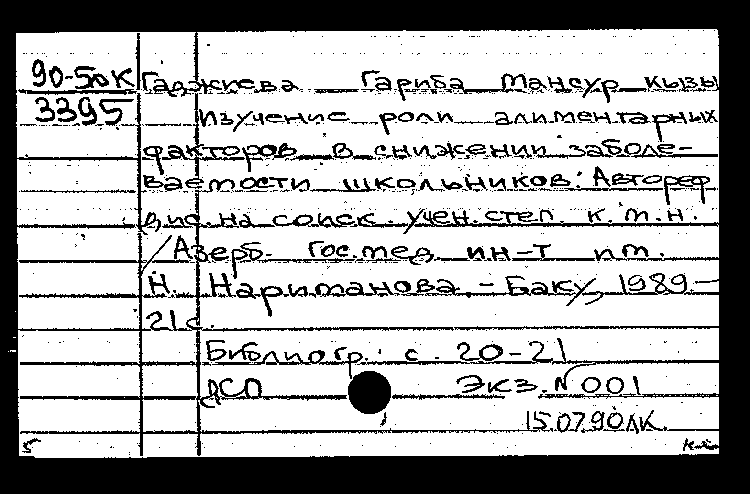 90-50к Гаджиева Гариба Мансур кызы
3395 Изучение роли алиментарных
факторов в снижении заболе-
ваемости школьников: Автореф
дис. на соиск. учен. степ. к.м.н.
/Азерб. Гос. мед. ин-т им.
Н. Нариманова. - Баку, 1989. -
21 с.
Библиогр.: с. 20-21
ДСП Экз. № 001
15.07.90 ЛК.
5